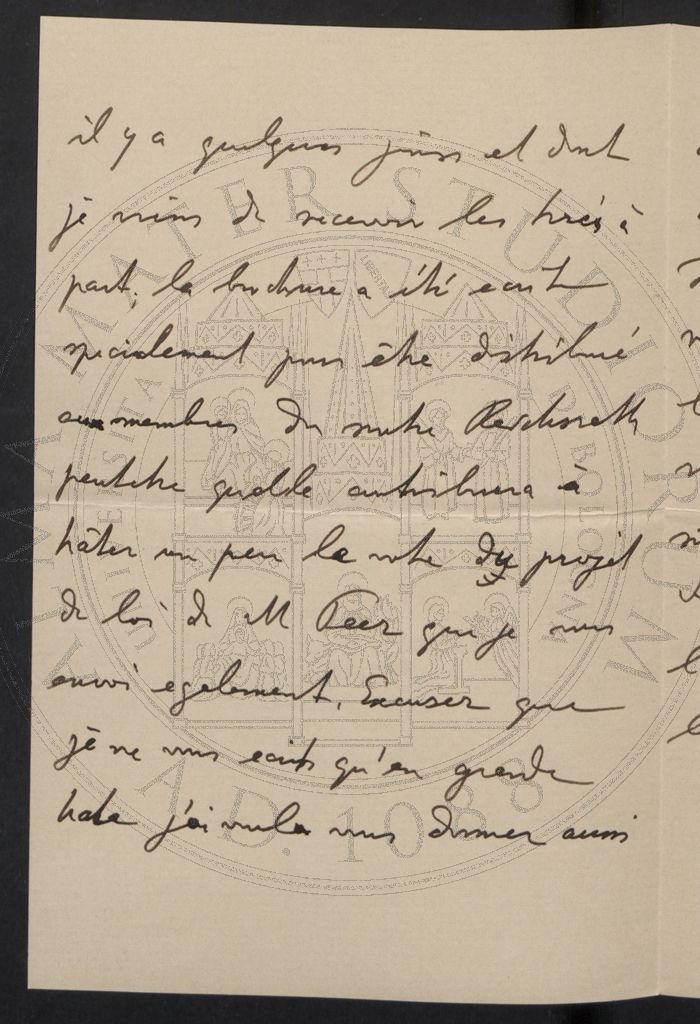 il y a quelques jours et dont
je viens de recevoir les tirés à
part; la brochure a été ecrit
specialement pour être distribué
aux membres du notre Reichsrath
peutetre quelle contribuera à
hâter un peu le vote du projet
de loi de M Peez que je vous
envoi egalement. Excusez que
je ne vous ecrits qu'en grande
hate j'ai voulu vous donner aussi
ALMA MATER STUDIORUM
A.D. 1088